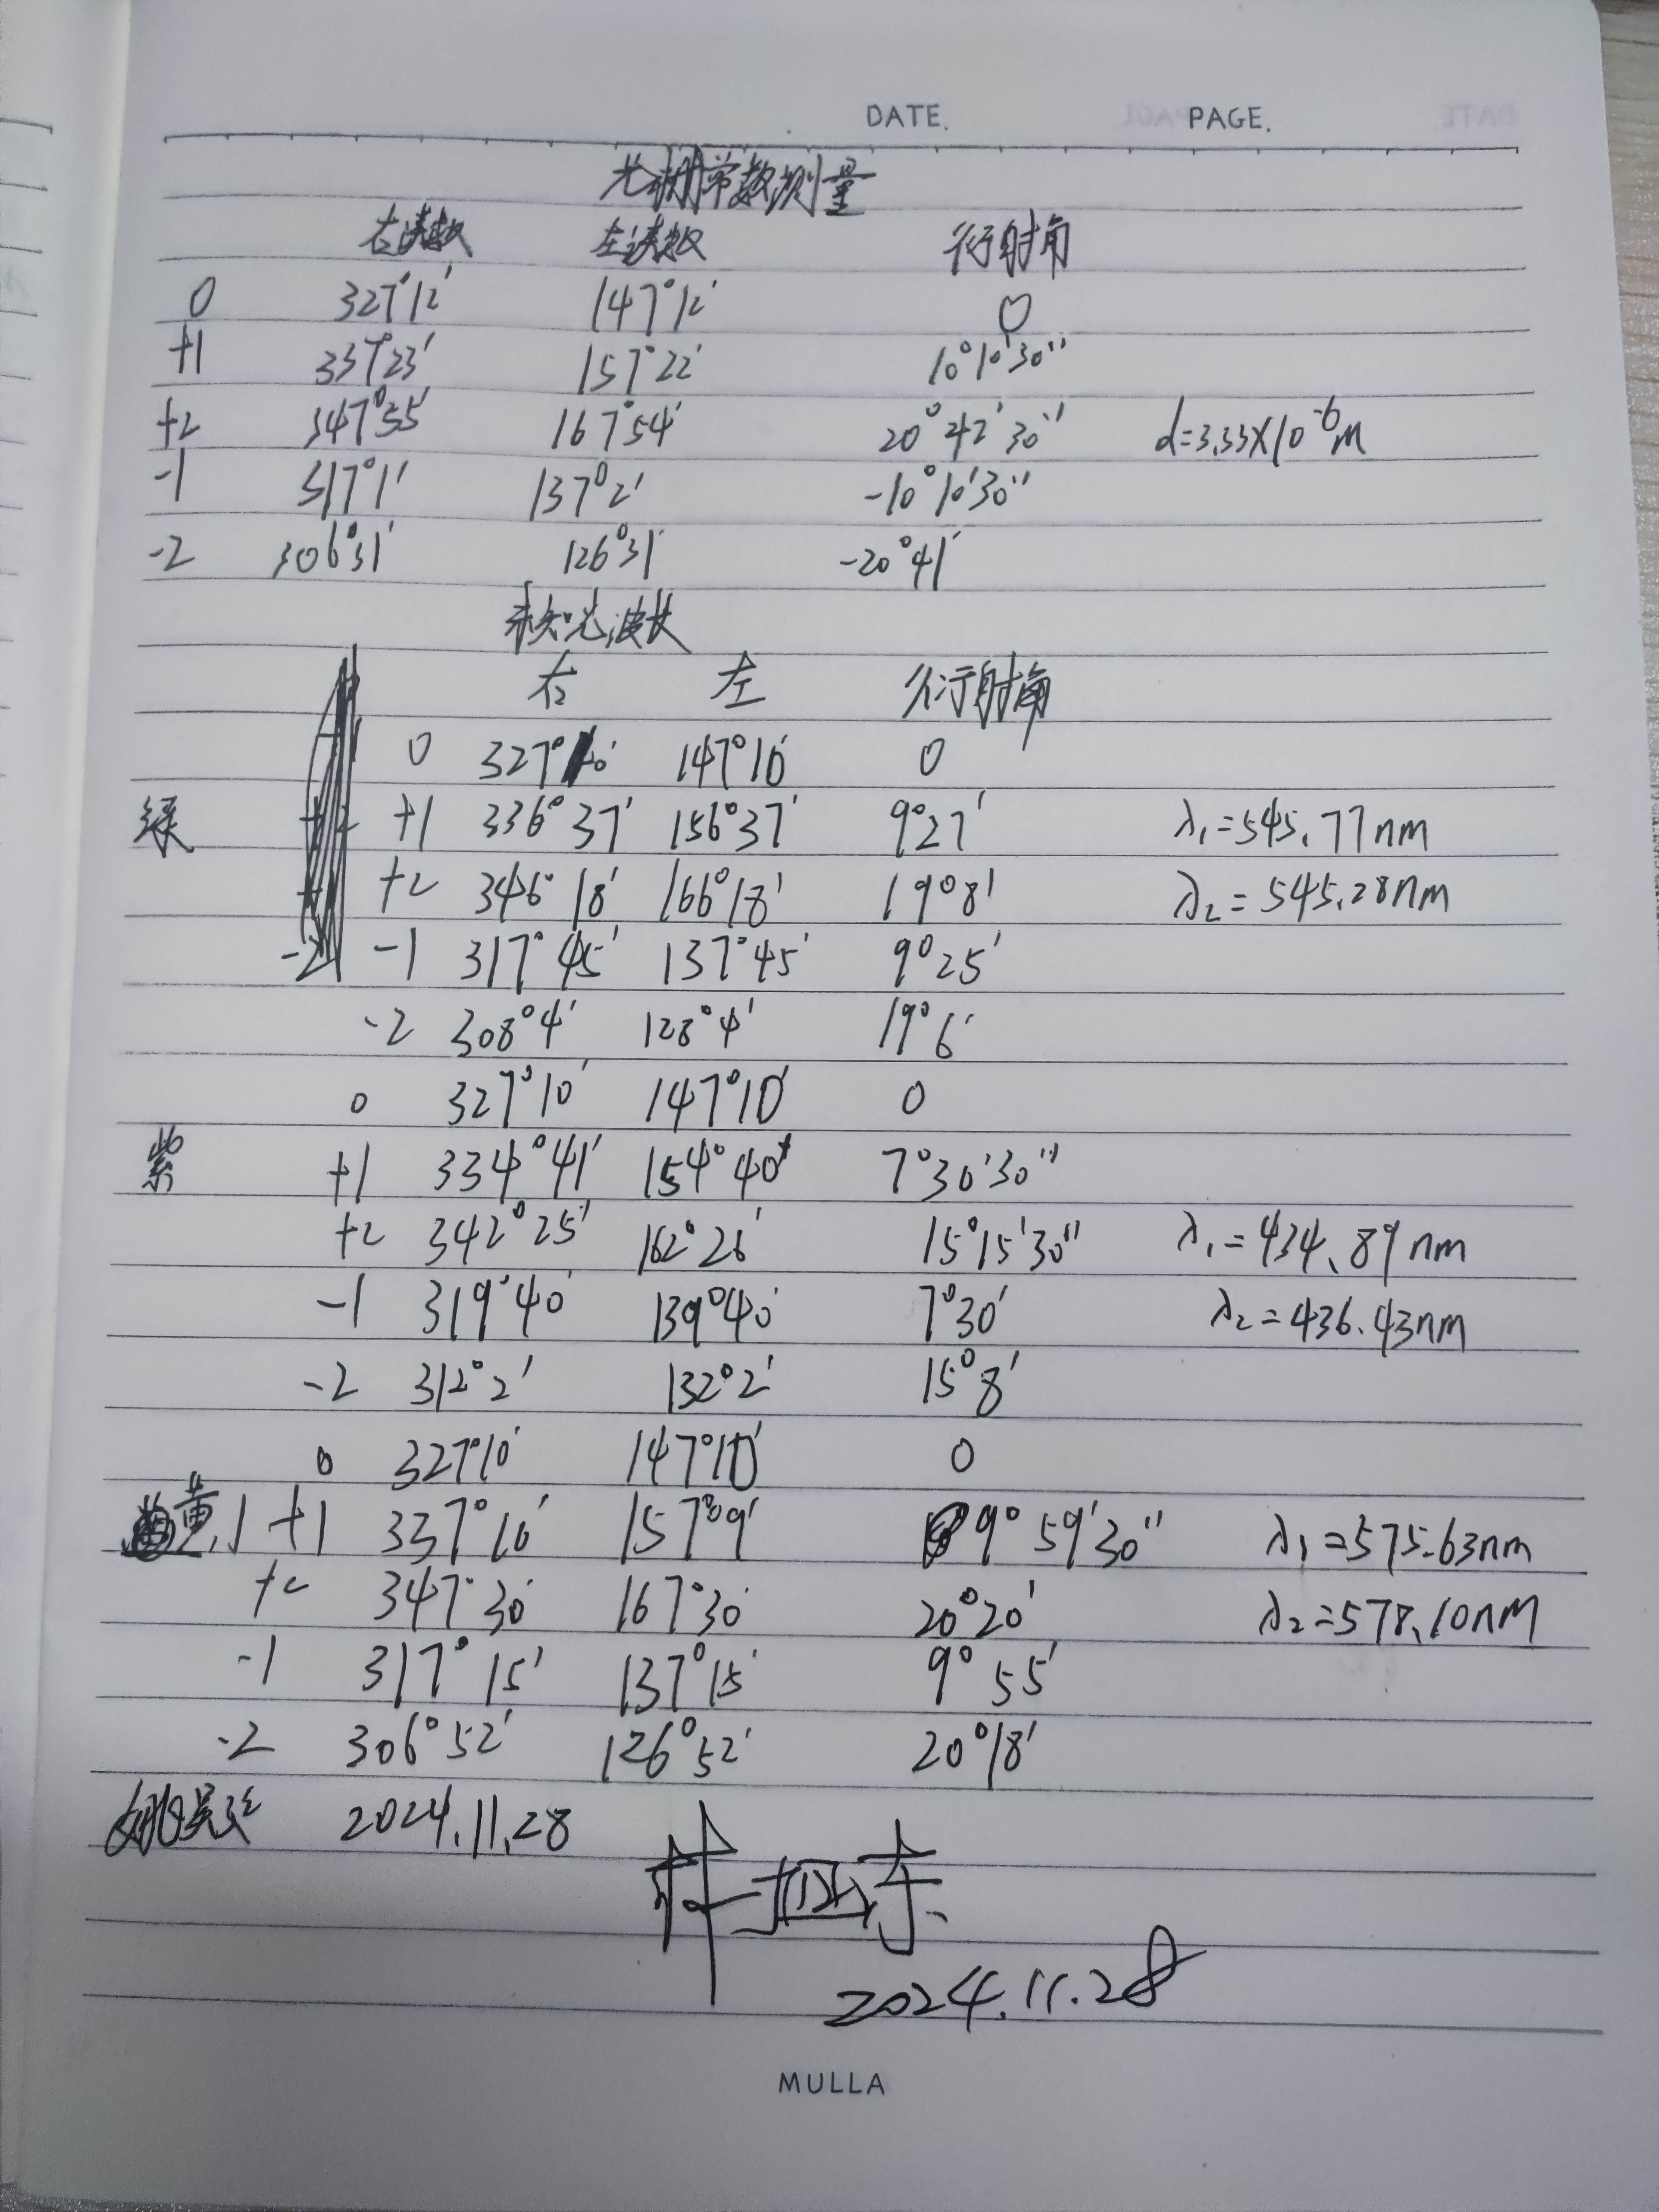 DATE. PAGE.
光栅常数测量
右读数 左读数 衍射角
0 327°12' 147°12' 0
+1 337°23' 157°22' 10°10'30''
+2 347°55' 167°54' 20°42'30'' d=3.33×10⁻⁶m
-1 317°1' 137°2' -10°10'30''
-2 306°31' 126°31' -20°41'
未知光波长
右 左 衍射角
0 327°10' 147°10' 0
绿 +1 336°37' 156°37' 9°27' λ₁=545.77nm
+2 346°18' 166°18' 19°8' λ₂=545.28nm
-2 -1 317°45' 137°45' 9°25'
-2 308°4' 128°4' 19°6'
0 327°10' 147°10' 0
紫 +1 334°41' 154°40' 7°30'30''
+2 342°25' 162°26' 15°15'30'' λ₁=434.89nm
-1 319°40' 139°40' 7°30' λ₂=436.43nm
-2 312°2' 132°2' 15°8'
0 327°10' 147°10' 0
黄1 +1 337°10' 157°09' 9°59'30'' λ₁=575.63nm
+2 347°30' 167°30' 20°20' λ₂=578.10nm
-1 317°15' 137°15' 9°55'
-2 306°52' 126°52' 20°18'
2024.11.28
2024.11.28
MULLA